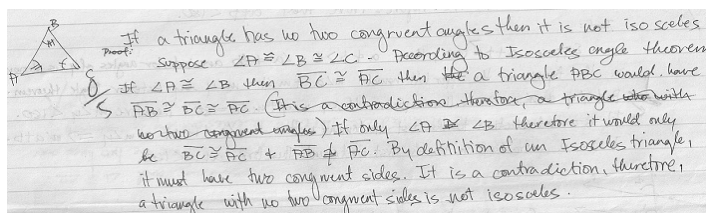 B
If a triangle has no two congruent angles then it is not isosceles
Proof:
Suppose ∠A ≅ ∠B ≅ ∠C. According to Isosceles angle theorem
A C
0/5
If ∠A ≅ ∠B then BC ≅ AC then a triangle ABC would have
AB ≅ BC ≅ AC. (It is a contradiction therefore, a triangle with
no two congruent angles) If only ∠A ≅ ∠B therefore it would only
be BC ≅ AC + AB ≇ AC. By definition of an Isosceles triangle,
it must have two congruent sides. It is a contradiction, therefore,
a triangle with no two congruent sides is not isosceles.